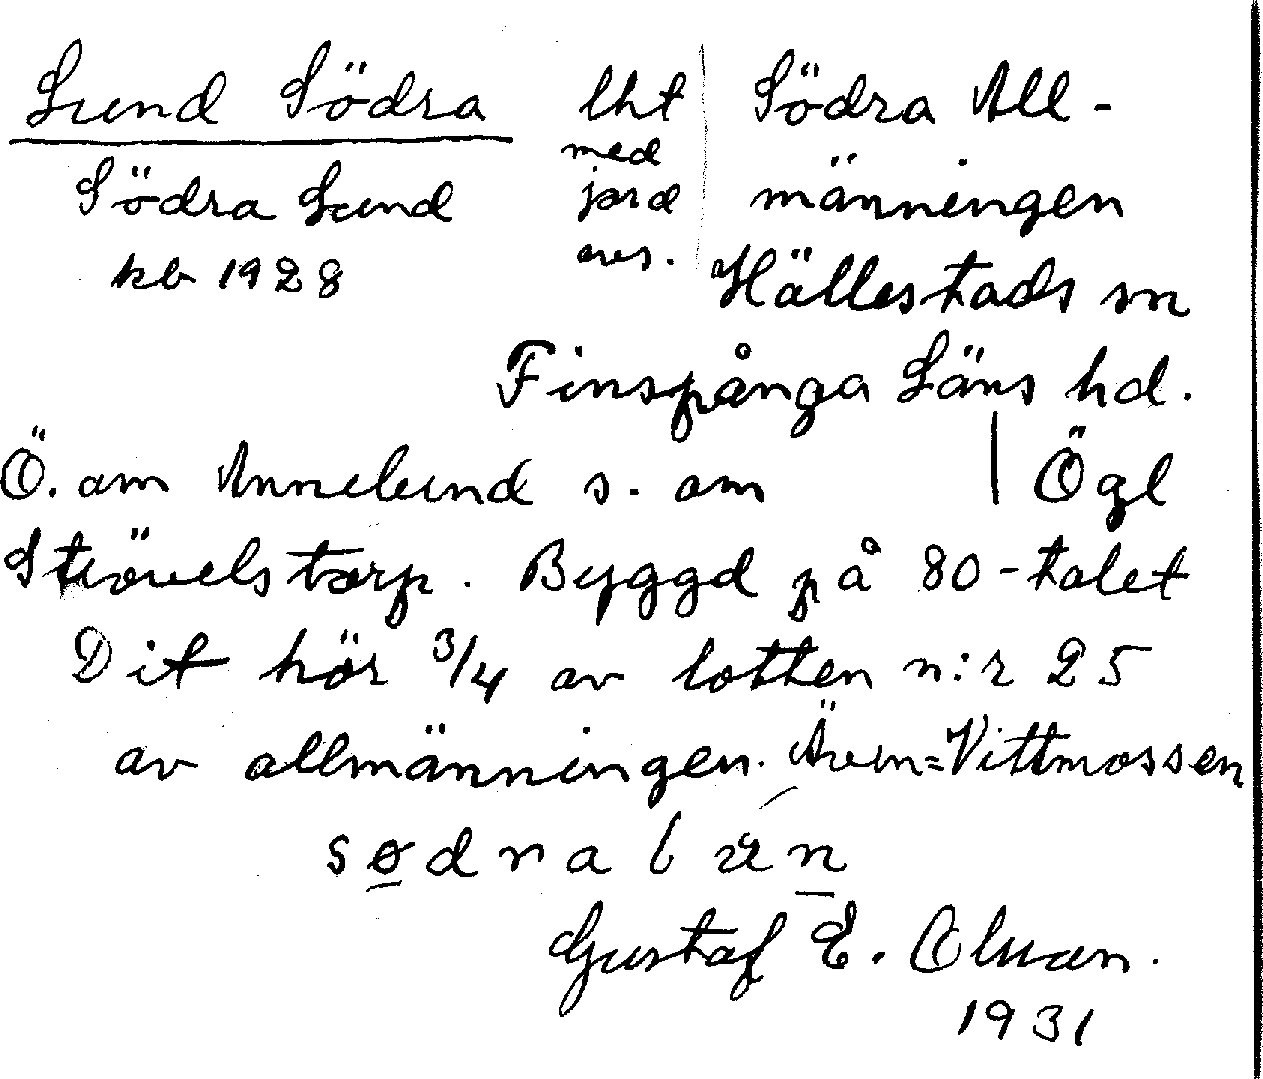 Lund Södra lht Södra All-
med
Södra Lund jord männingen
kb 1928 avs. Hällestads sn
Finspånga Läns hd.
Ö. om Annelund s. om Ögl
Strövelstorp. Byggd på 80-talet
Dit hör 3/4 av lotten n:r 25
av allmänningen. Även=Vittmossen
sødna
Gustaf E. Olsson.
1931